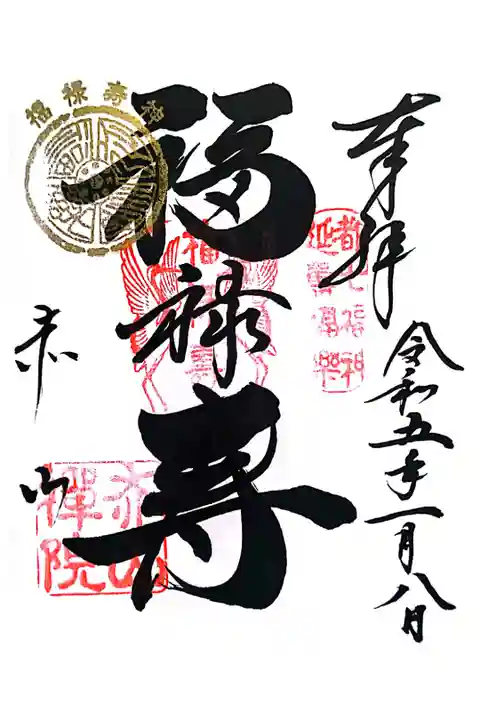 奉拝
令和五年一月八日
都七福神
延寿福楽
福禄寿
福禄寿神
赤山
赤山禅院